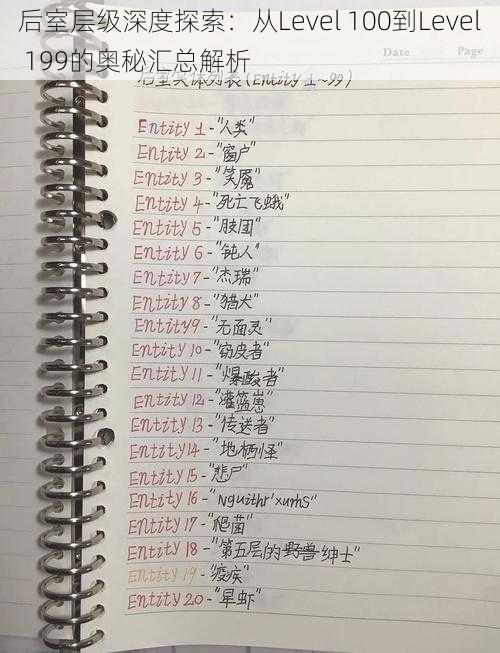 后室层级深度探索：从Level 100到Level
199的奥秘汇总解析
后室实体列表(Entity 1~99)
Entity 1-"人类"
Entity 2-"窗户"
Entity 3-"笑魇"
Entity 4-"死亡飞蛾"
Entity 5-"肢团"
Entity 6-"钝人"
Entity 7-"杰瑞"
Entity 8-"猎犬"
Entity 9-"无面灵"
Entity 10-"窃皮者"
Entity 11-"爆酸者"
Entity 12-"灌篮崽"
Entity 13-"传送者"
Entity 14-"地栖怪"
Entity 15-"悲尸"
Entity 16-"Nguithr'xurhs"
Entity 17-"爬菌"
Entity 18-"第五层的野兽绅士"
Entity 19-"疫疾"
Entity 20-"旱虾"